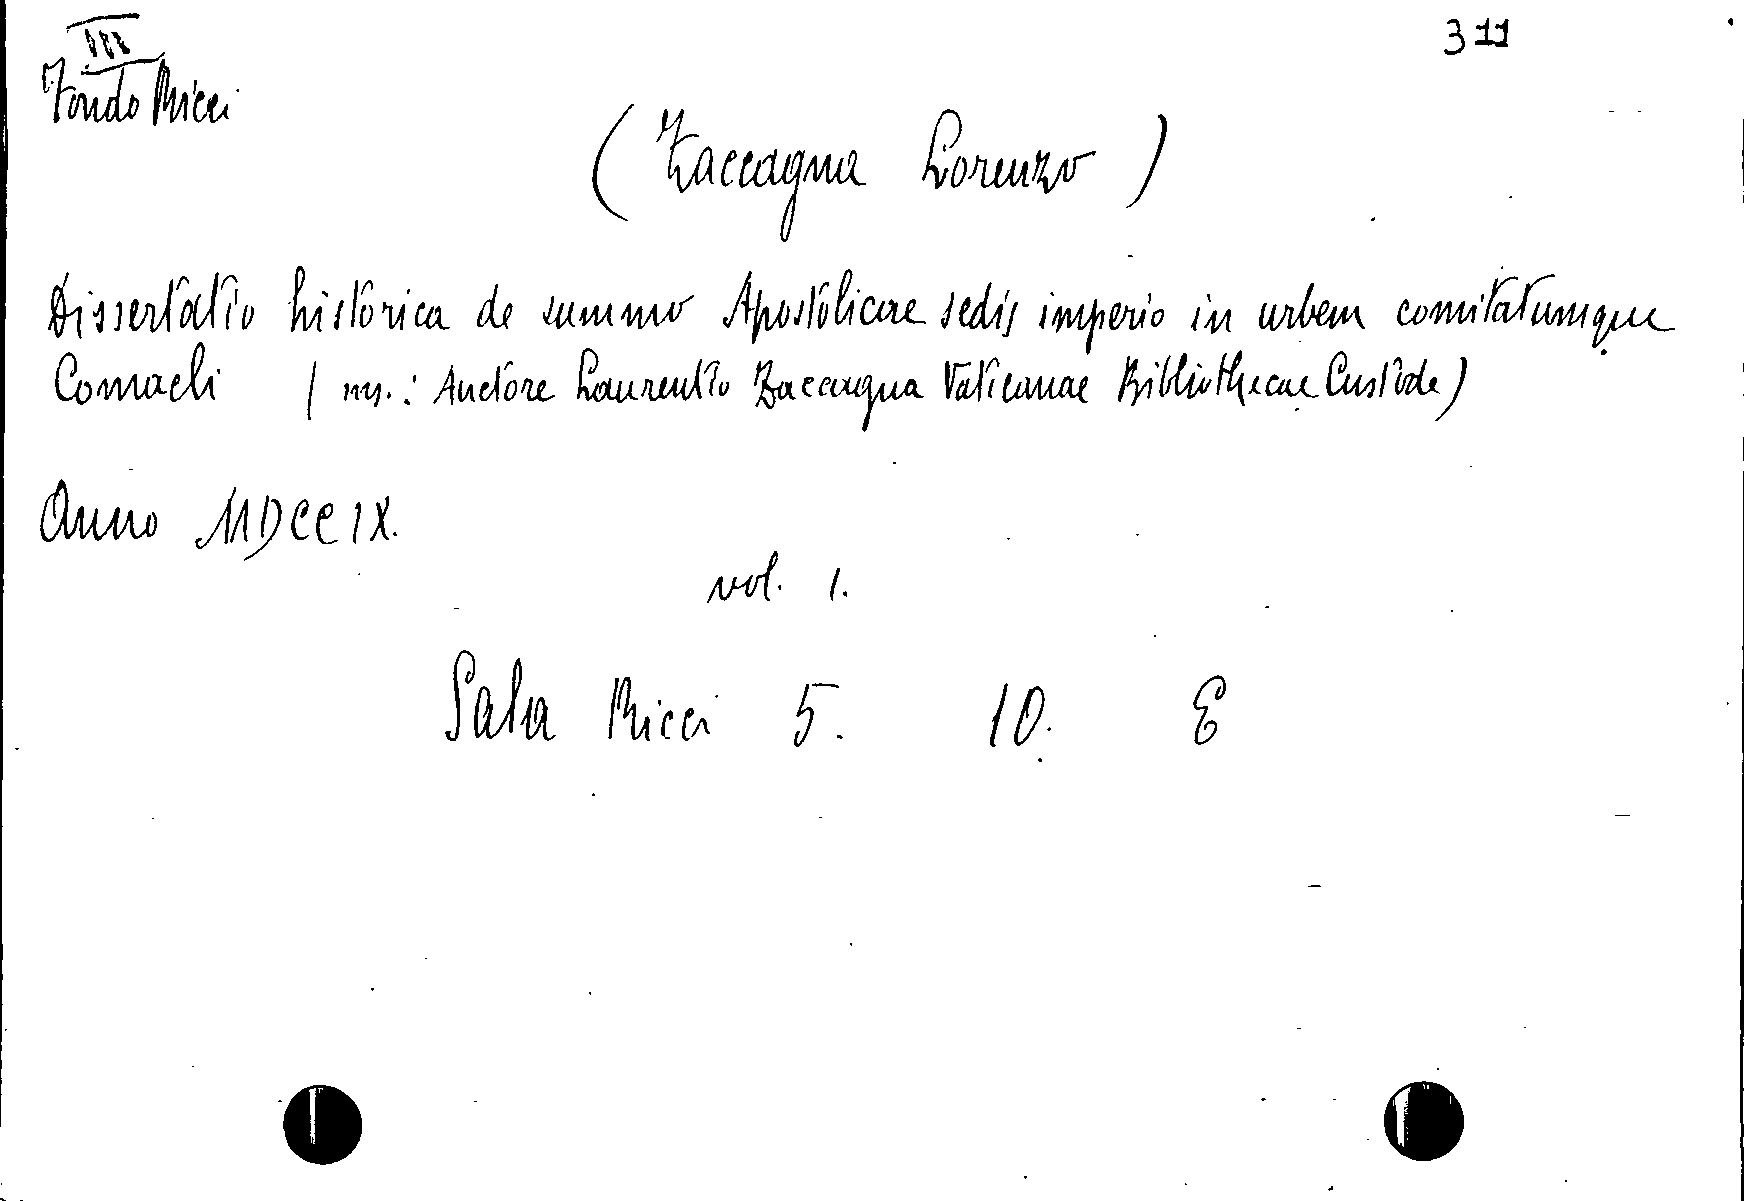 III
311
Fondo Ricci
( Zaccagna Lorenzo )
Dissertatio historica de summo Apostolicae sedis imperio in urbem comitatumque
Comacli ( ms.: Auctore Laurentio Zaccagna Vaticanae Bibliothecae Custode )
Anno MDCCIX.
vol. 1.
Sala Ricci 5. 10. E